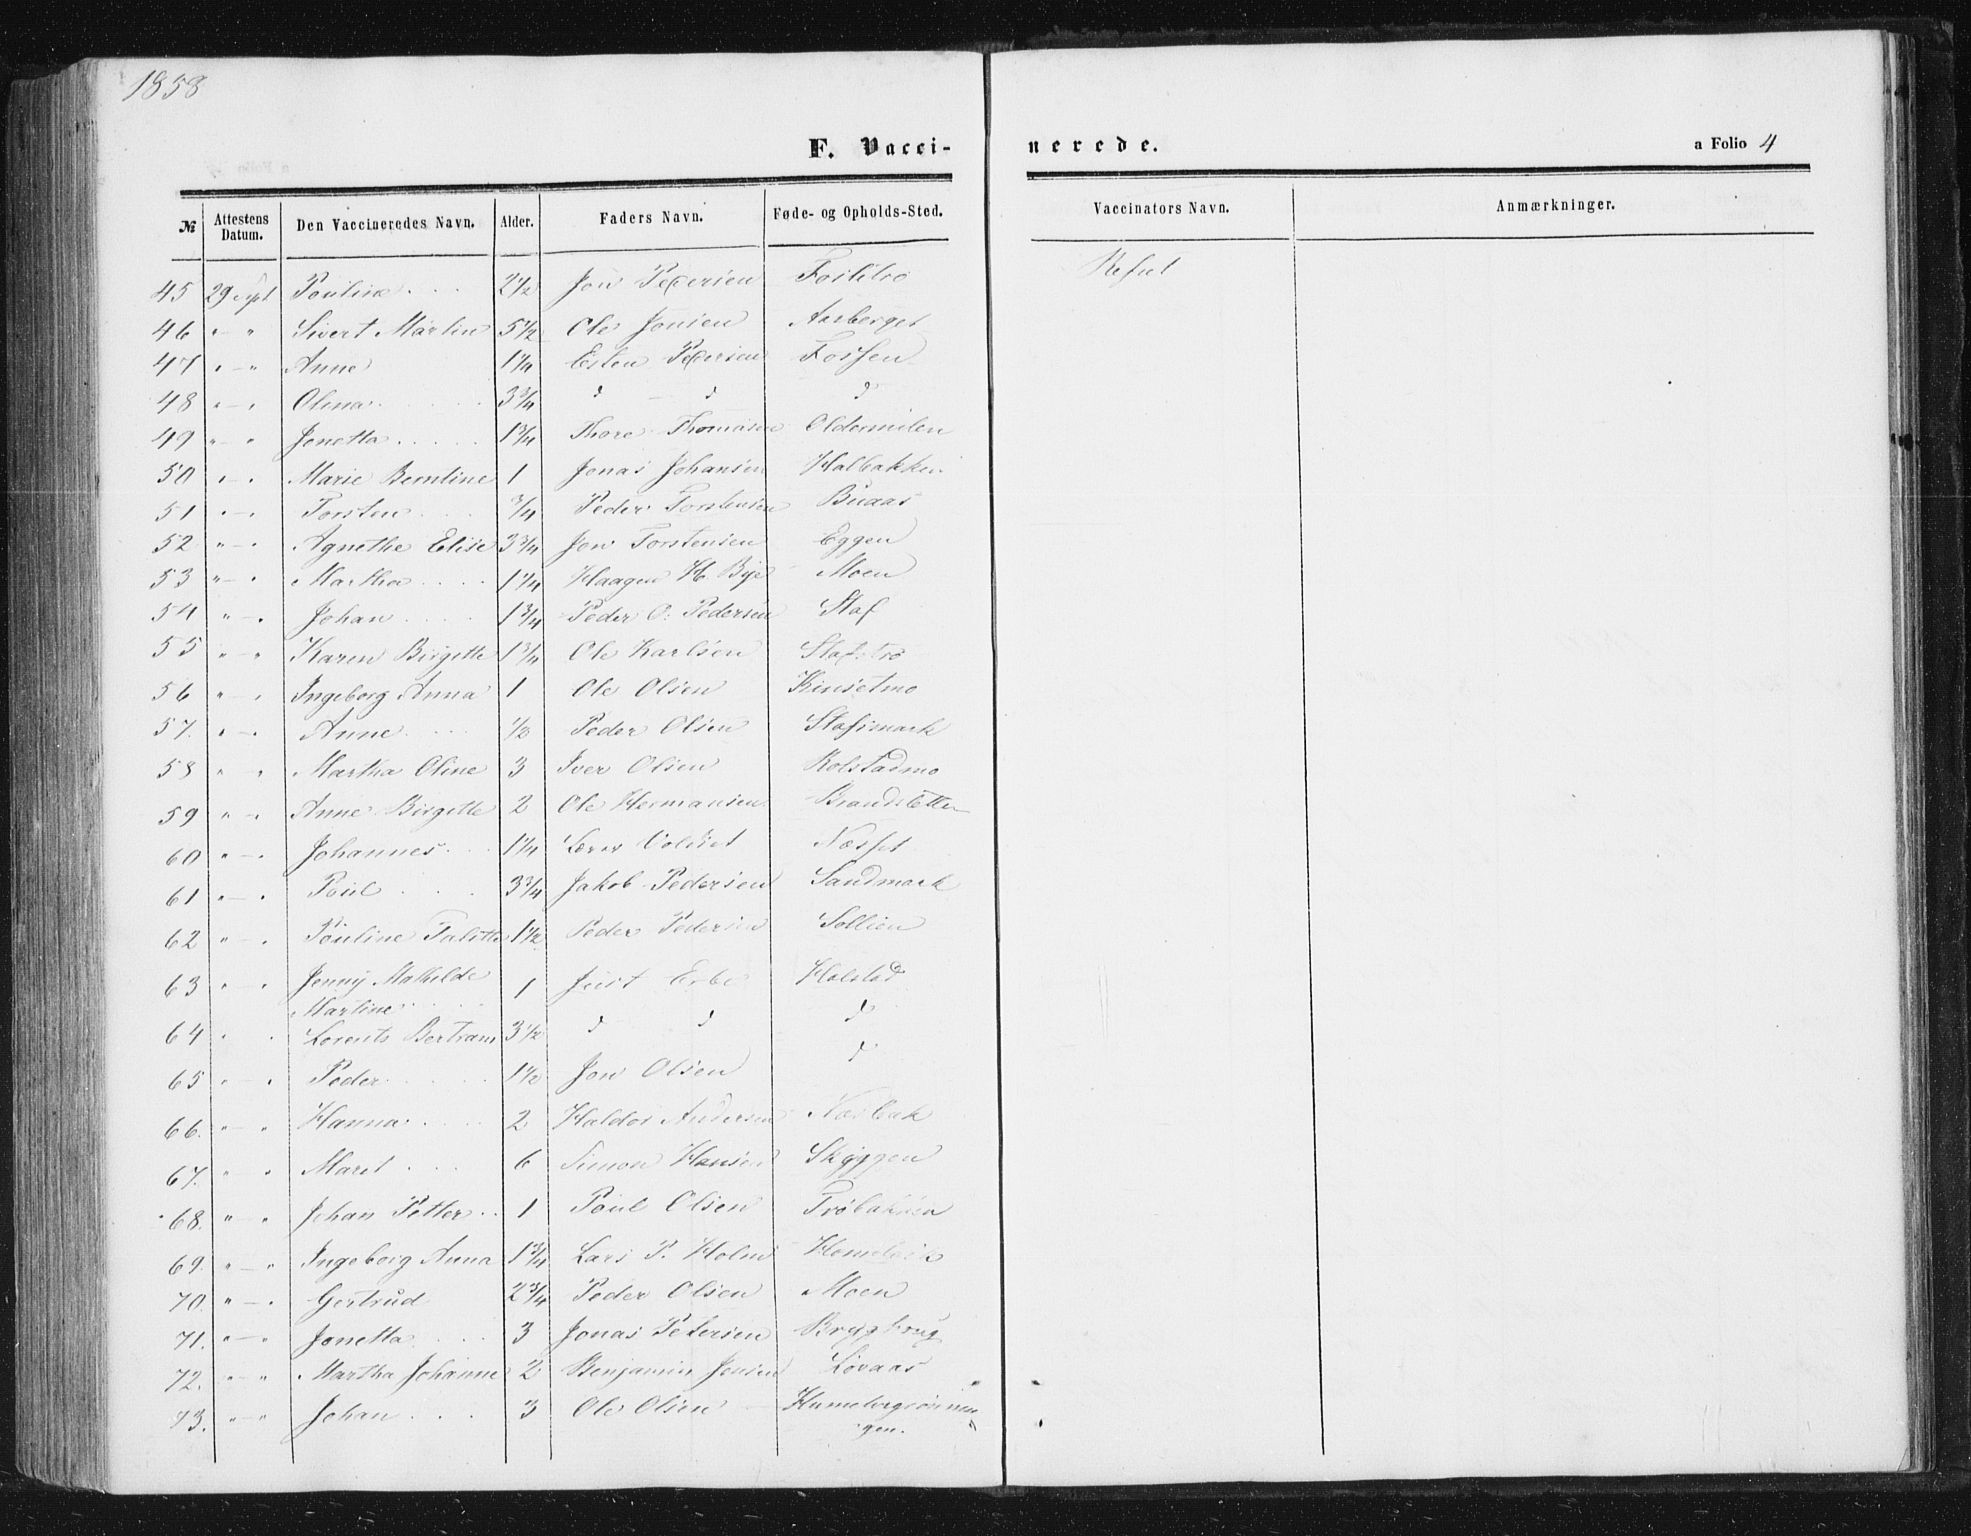 1858
F. Vacci- nerede. a Folio 4
№ Attestens Datum. Den Vaccineredes Navn. Alder. Faders Navn. Føde- og Opholds-Sted. Vaccinators Navn. Anmærkninger.
45 29 Sept Pouline 2 1/2 Jon Pedersen
46 " - " Sivert Martin 5 1/2 Ole Jonsen Aasberget
47 " - " Anne 1 1/4 Esten Pedersen Fossen
48 " - " Olina 3 3/4 d - d d
49 " - " Jonetta 1 3/4 Thore Thomasen Oldermelen
50 " - " Marie Berntine 1 Jonas Johansen Halbakken
51 " - " Torsten 3/4 Peder Torstensen Buaas
52 " - " Agnethe Elise 3 3/4 Jon Torstensen Eggen
53 " - " Martha 1 1/4 Haagen H. Bye Moen
54 " - " Johan 1 3/4 Peder O. Pedersen Staf
55 " - " Karen Birgitte 1 3/4 Ole Karlsen Stafstrø
56 " - " Ingeborg Anna 1 Ole Olsen Kinsetmo
57. " - " Anne 1/2 Peder Olsen Stafsmark
58 " " Martha Oline 3 Iver Olsen Kolstadmo
59 " - " Anne Birgitte 2 Ole Hermansen Brandsletten
60 " - " Johannes 1 1/4 Voldset Næsset
61 " - " Poul 3 3/4 Jakob Pedersen Sandmark
62 " - " Pouline Talitte 1 1/2 Peder Pedersen Sollien
63 " - " Jenny Mathilde 1 Just Erbe Halstad
Martine
64 " " Lorents Bertram 3 1/2 d d d
65 " - " Peder 1 1/2 Jon Olsen d
66. " - " Hanna 2 Haldor Andersen Næsbak
67. " - " Maret 6 Simon Hansen Skyggen
68. " - " Johan Petter 1 Poul Olsen Trøbakken
69. " - " Ingeborg Anna 1 3/4 Lars P. Holm Homelvik
70. " - " Gertrud 2 3/4 Peder Olsen Moen
71. " - " Jonetta 3 Jonas Petersen
72. " - " Martha Johanne 2 Benjamin Jensen Løvaas
73. " - " Johan 3 Ole Olsen
gen.